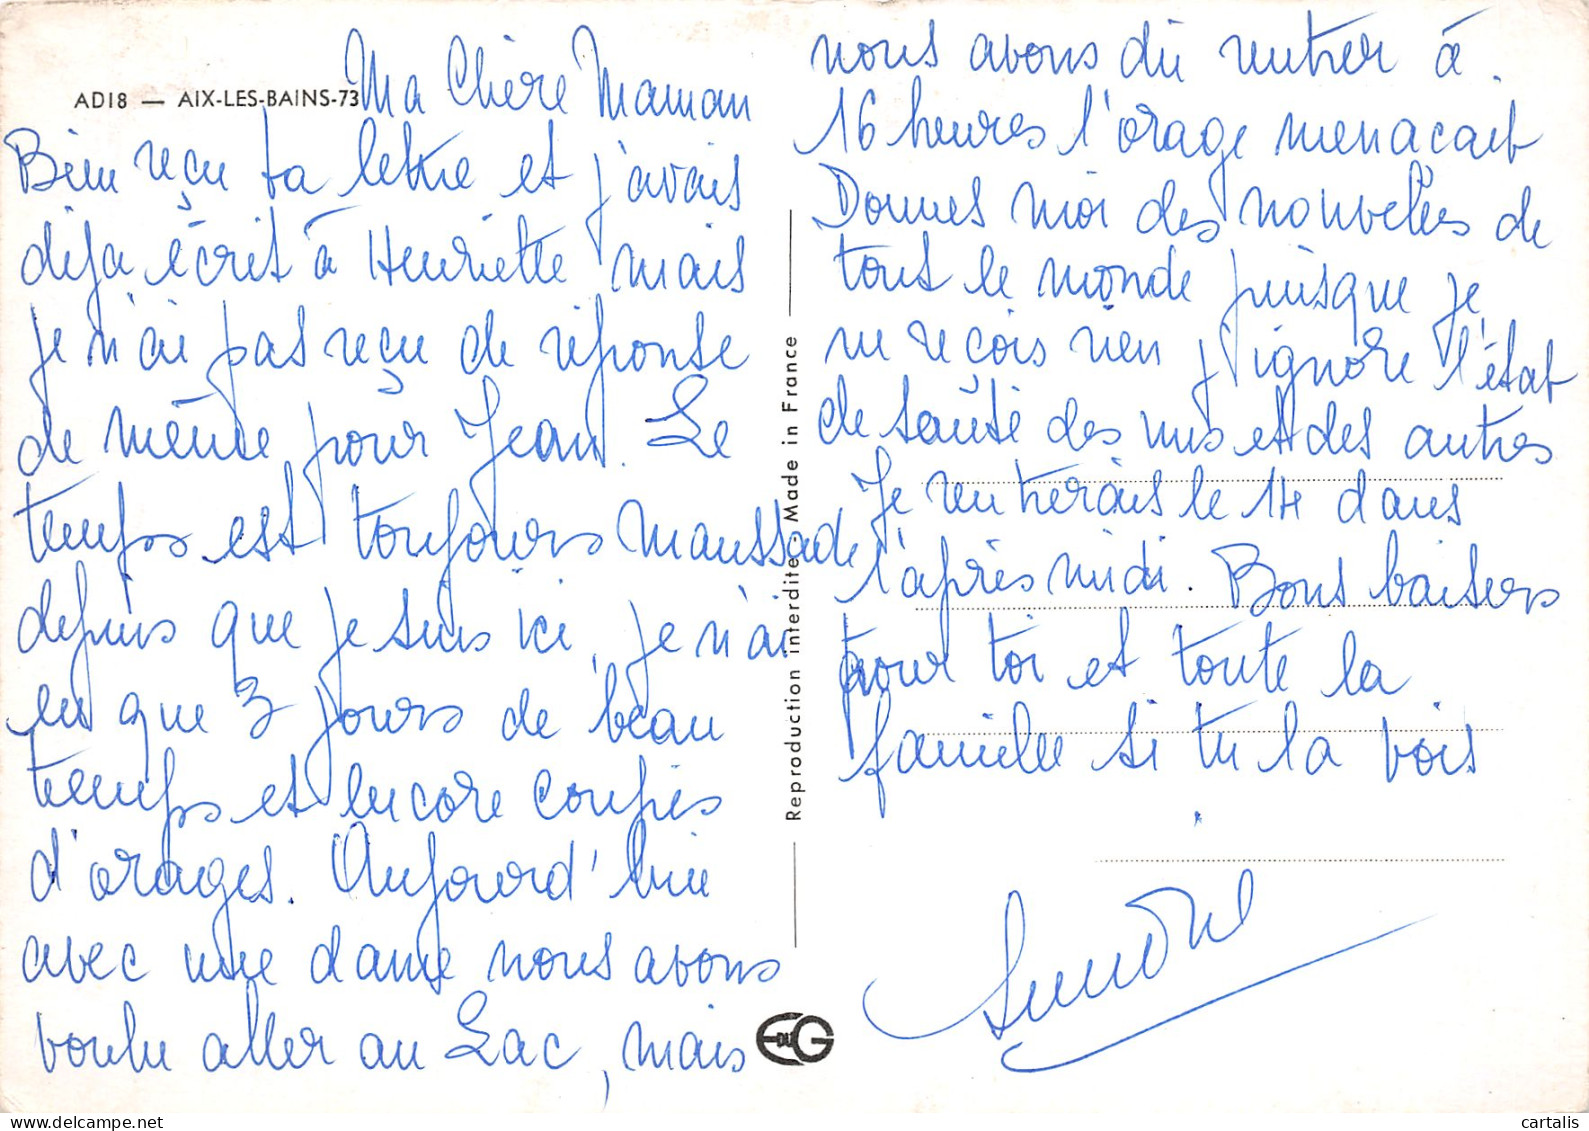 AD18 — AIX-LES-BAINS-73
Ma Chère Maman
Bien reçu ta lettre et j'avais
déja écrit à Henriette mais
je n'ai pas reçu de réponse
de même pour Jean. Le
temps est toujours maussade
depuis que je suis ici, je n'ai
eu que 3 jours de beau
temps et encore coupés
d'orages. Aujourd'hui
avec une dame nous avons
voulu aller au Lac, mais
nous avons dû rentrer à
16 heures l'orage menacait
Donnes moi des nouvelles de
tout le monde puisque je
ne reçois rien j'ignore l'état
de santé des uns et des autres
Je rentrerais le 14 dans
l'après midi. Bons baisers
pour toi et toute la
famille si tu la vois
.
Simone
Reproduction interdite - Made in France
EDUG
cartalis